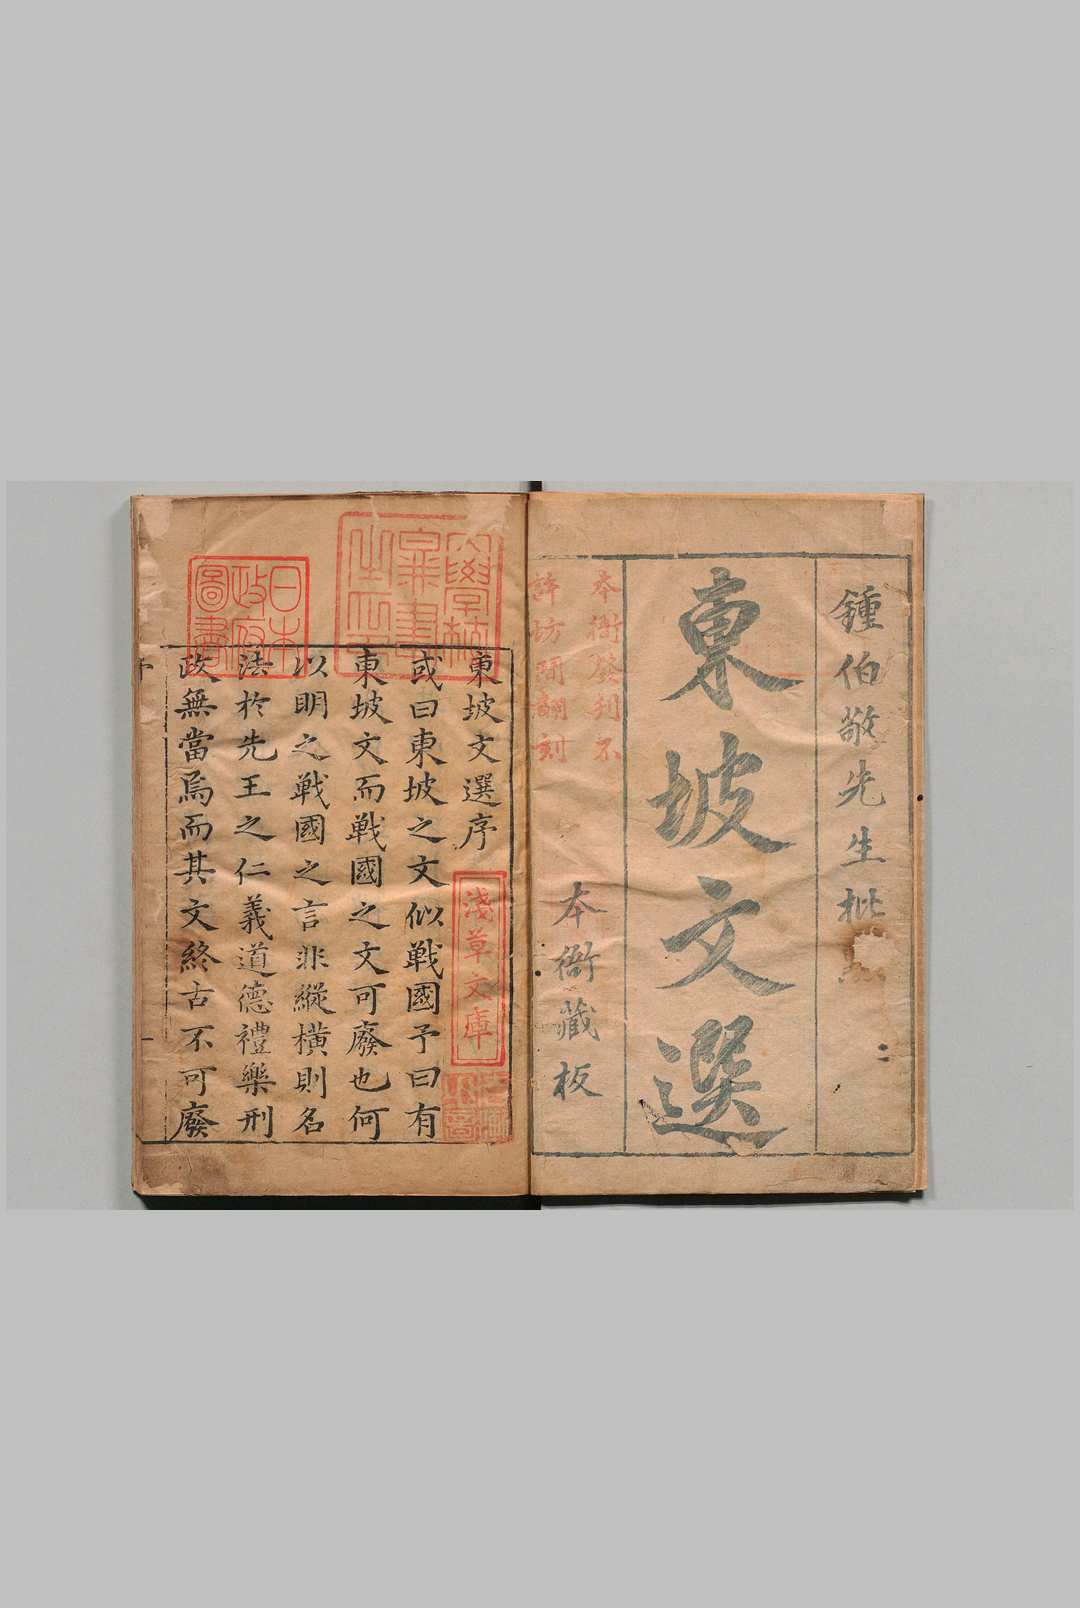 鍾伯敬先生批
東坡文選
本衙藏板
本衙發刊不
許坊間翻刻
東坡文選序
或曰東坡之文似戰國予曰有
東坡文而戰國之文可廢也何
以明之戰國之言非縱橫則名
法於先王之仁義道德禮樂刑
政無當焉而其文終古不可廢
序
一
淺草文庫
日本
政府
圖書